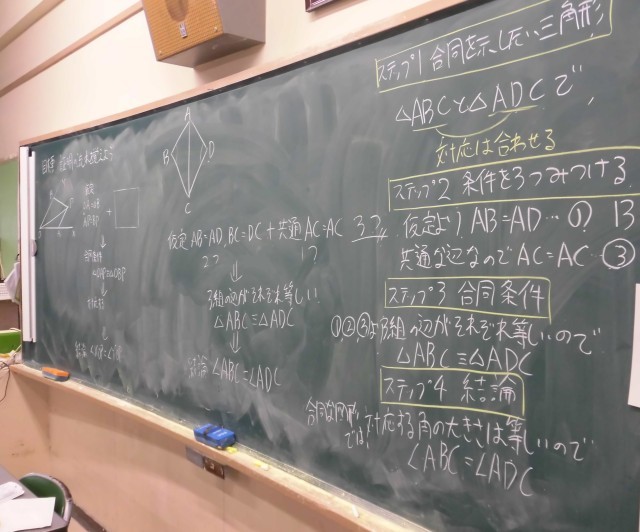 目標
仮定
合同条件
結論
A
B
D
C
仮定 AB=AD, BC=DC + 共通 AC=AC 3つ
2つ
1つ
⇓
3組の辺がそれぞれ等しい
△ABC≡△ADC
⇓
結論 ∠ABC=∠ADC
ステップ1 合同を示したい三角形
△ABCと△ADCで,
対応は合わせる
ステップ2 条件を3つみつける
仮定より, AB=AD…①
共通な辺なのでAC=AC…③
ステップ3 合同条件
①,②,③より3組の辺がそれぞれ等しいので
△ABC≡△ADC
ステップ4 結論
合同な図形
では,対応する角の大きさは等しいので
∠ABC=∠ADC